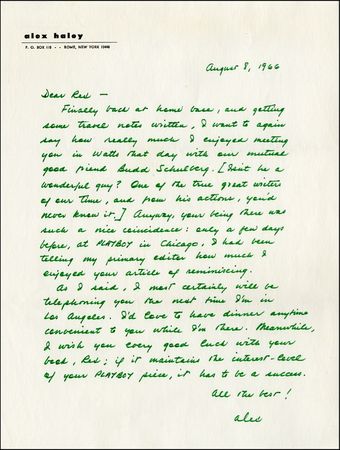 alex haley
P. O. BOX 110 - - ROME, NEW YORK 13440
August 8, 1966
Dear Red —
Finally back at home base, and getting
some travel notes written, I want to again
say how really much I enjoyed meeting
you in Watts that day with our mutual
good friend Budd Schulberg. [Isn't he a
wonderful guy? One of the true great writers
of our time, and from his actions, you'd
never know it.] Anyway, your being there was
such a nice coincidence: only a few days
before, at PLAYBOY in Chicago, I had been
telling my primary editor how much I
enjoyed your article of reminiscing.
As I said, I most certainly will be
telephoning you the next time I'm in
Los Angeles. I'd love to have dinner anytime
convenient to you while I'm there. Meanwhile,
I wish you every good luck with your
book, Red; if it maintains the interest-level
of your PLAYBOY piece, it has to be a success.
All the best!
Alex